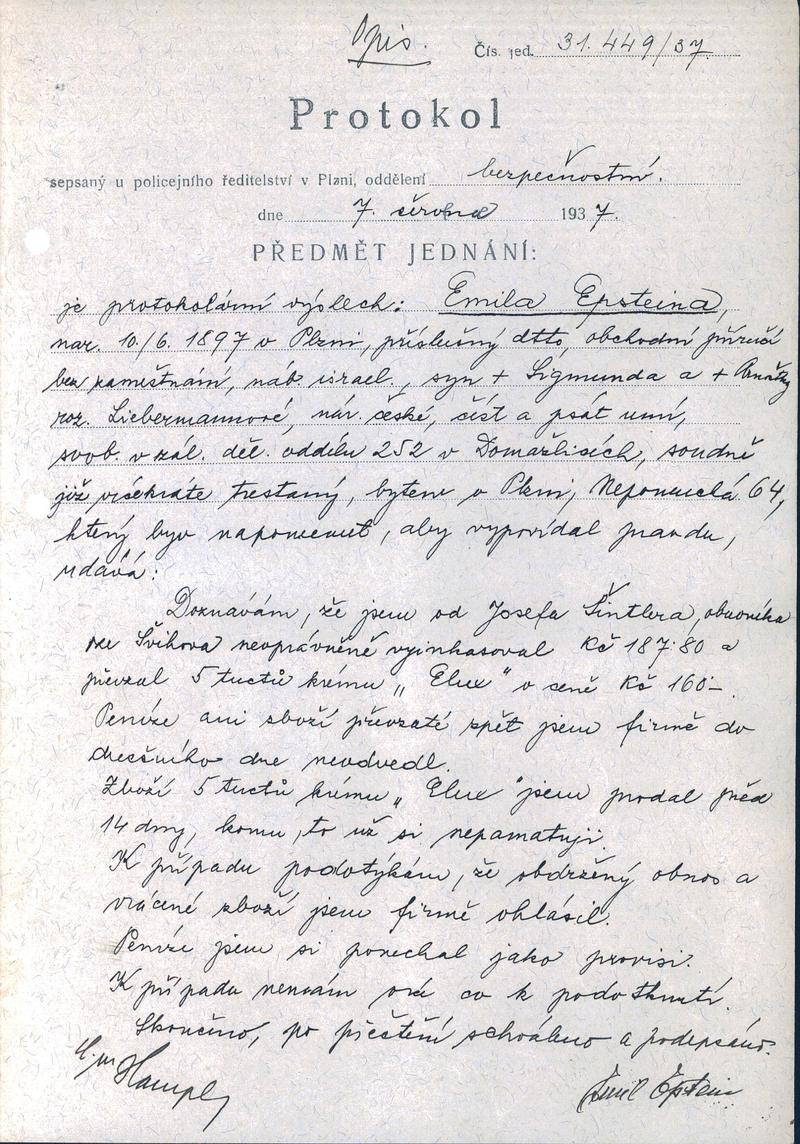 Opis.
Čís. jed. 31.449/37
Protokol
sepsaný u policejního ředitelství v Plzni, oddělení bezpečnostní.
dne 7. června 1937.
PŘEDMĚT JEDNÁNÍ:
je protokolární výslech: Emila Epsteina,
nar. 10./6. 1897 v Plzni, příslušný dtto, obchodní příručí
bez zaměstnání, náb. israel., syn + Sigmunda a +
roz. Liebermannové, nár. české, číst a psát umí,
svob. v zál. děl. oddílu 252 v Domažlicích, soudně
již vícekráte trestaný, bytem v Plzni, Nepomucká 64,
který byv napomenut, aby vypovídal pravdu,
udává:
Doznávám, že jsem od Josefa Šintlera, obuvníka
ze Švihova neoprávněně vyinkasoval Kč 187·80 a
převzal 5 tuctů krému „Elux" v ceně Kč 160–.
Peníze ani zboží převzaté zpět jsem firmě do
dnešního dne neodvedl.
Zboží 5 tuctů krému „Elux" jsem prodal před
14 dny, komu, to už si nepamatuji.
K případu podotýkám, že obdržený obnos a
vrácené zboží jsem firmě ohlásil.
Peníze jsem si ponechal jako provisi.
K případu nemám více co k podotknutí.
Skončeno, po přečtení schváleno a podepsáno.
Hampl
Emil Epstein